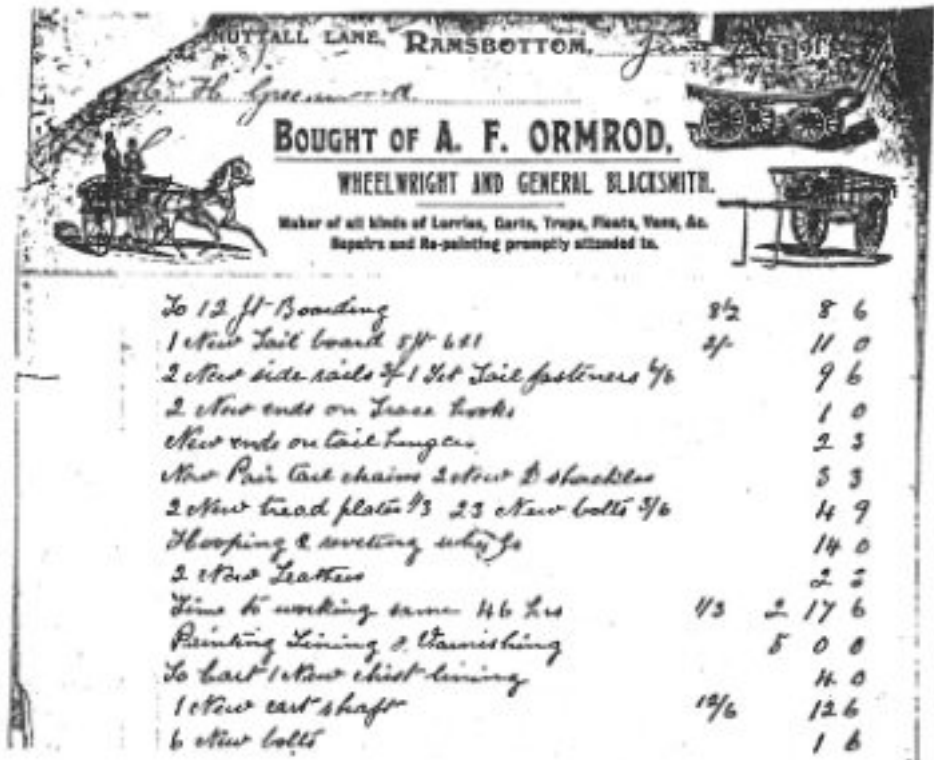 NUTTALL LANE, RAMSBOTTOM, June
H. Greenwood
BOUGHT OF A. F. ORMROD,
WHEELWRIGHT AND GENERAL BLACKSMITH.
Maker of all kinds of Lorries, Carts, Traps, Floats, Vans, &c.
Repairs and Re-painting promptly attended to.
To 12 ft Boarding 8½ 8 6
1 New Tail board 2/- 11 0
2 New side rails 1 Set Tail fasteners 9 6
2 New ends on Trace hooks 1 0
New ends on tail hinges 2 3
New Pair tail chains 2 New D shackles 3 3
2 New tread plates 1/3 23 New bolts 3/6 4 9
Hooping & riveting 14 0
2 New Leathers 2
Time to working same 46 hrs 1/3 2 17 6
Painting Lining & Varnishing 5 0 0
To Cart 1 New chist lining 4 0
1 New cart shaft 12/6 12 6
6 New bolts 1 6